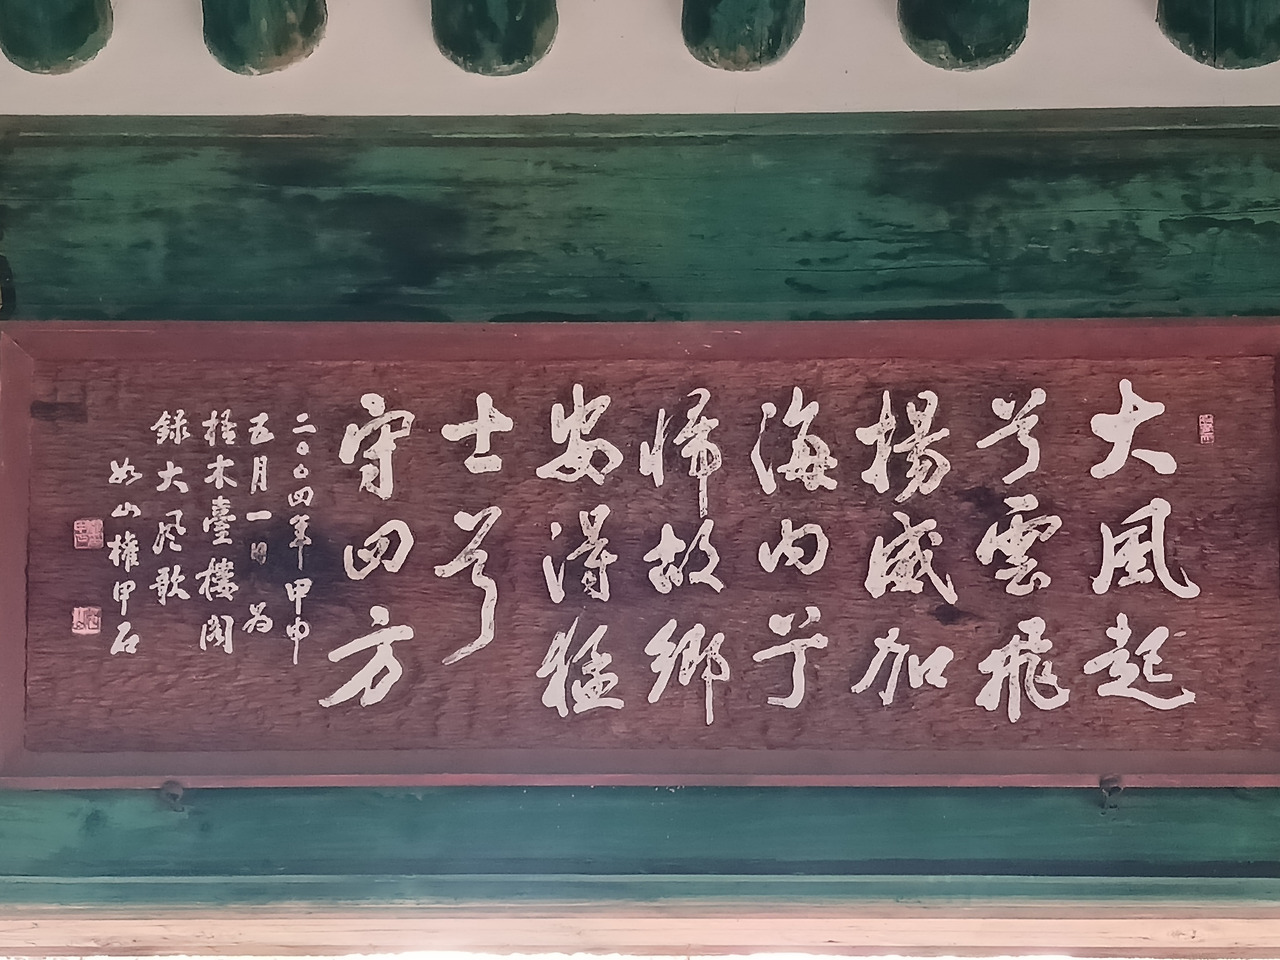 大風起
兮雲飛
揚威加
海内兮
帰故鄉
安得猛
士兮
守四方
二〇〇四年甲申
五月一日為
梧木臺樓閣
錄大风歌
如山權甲石